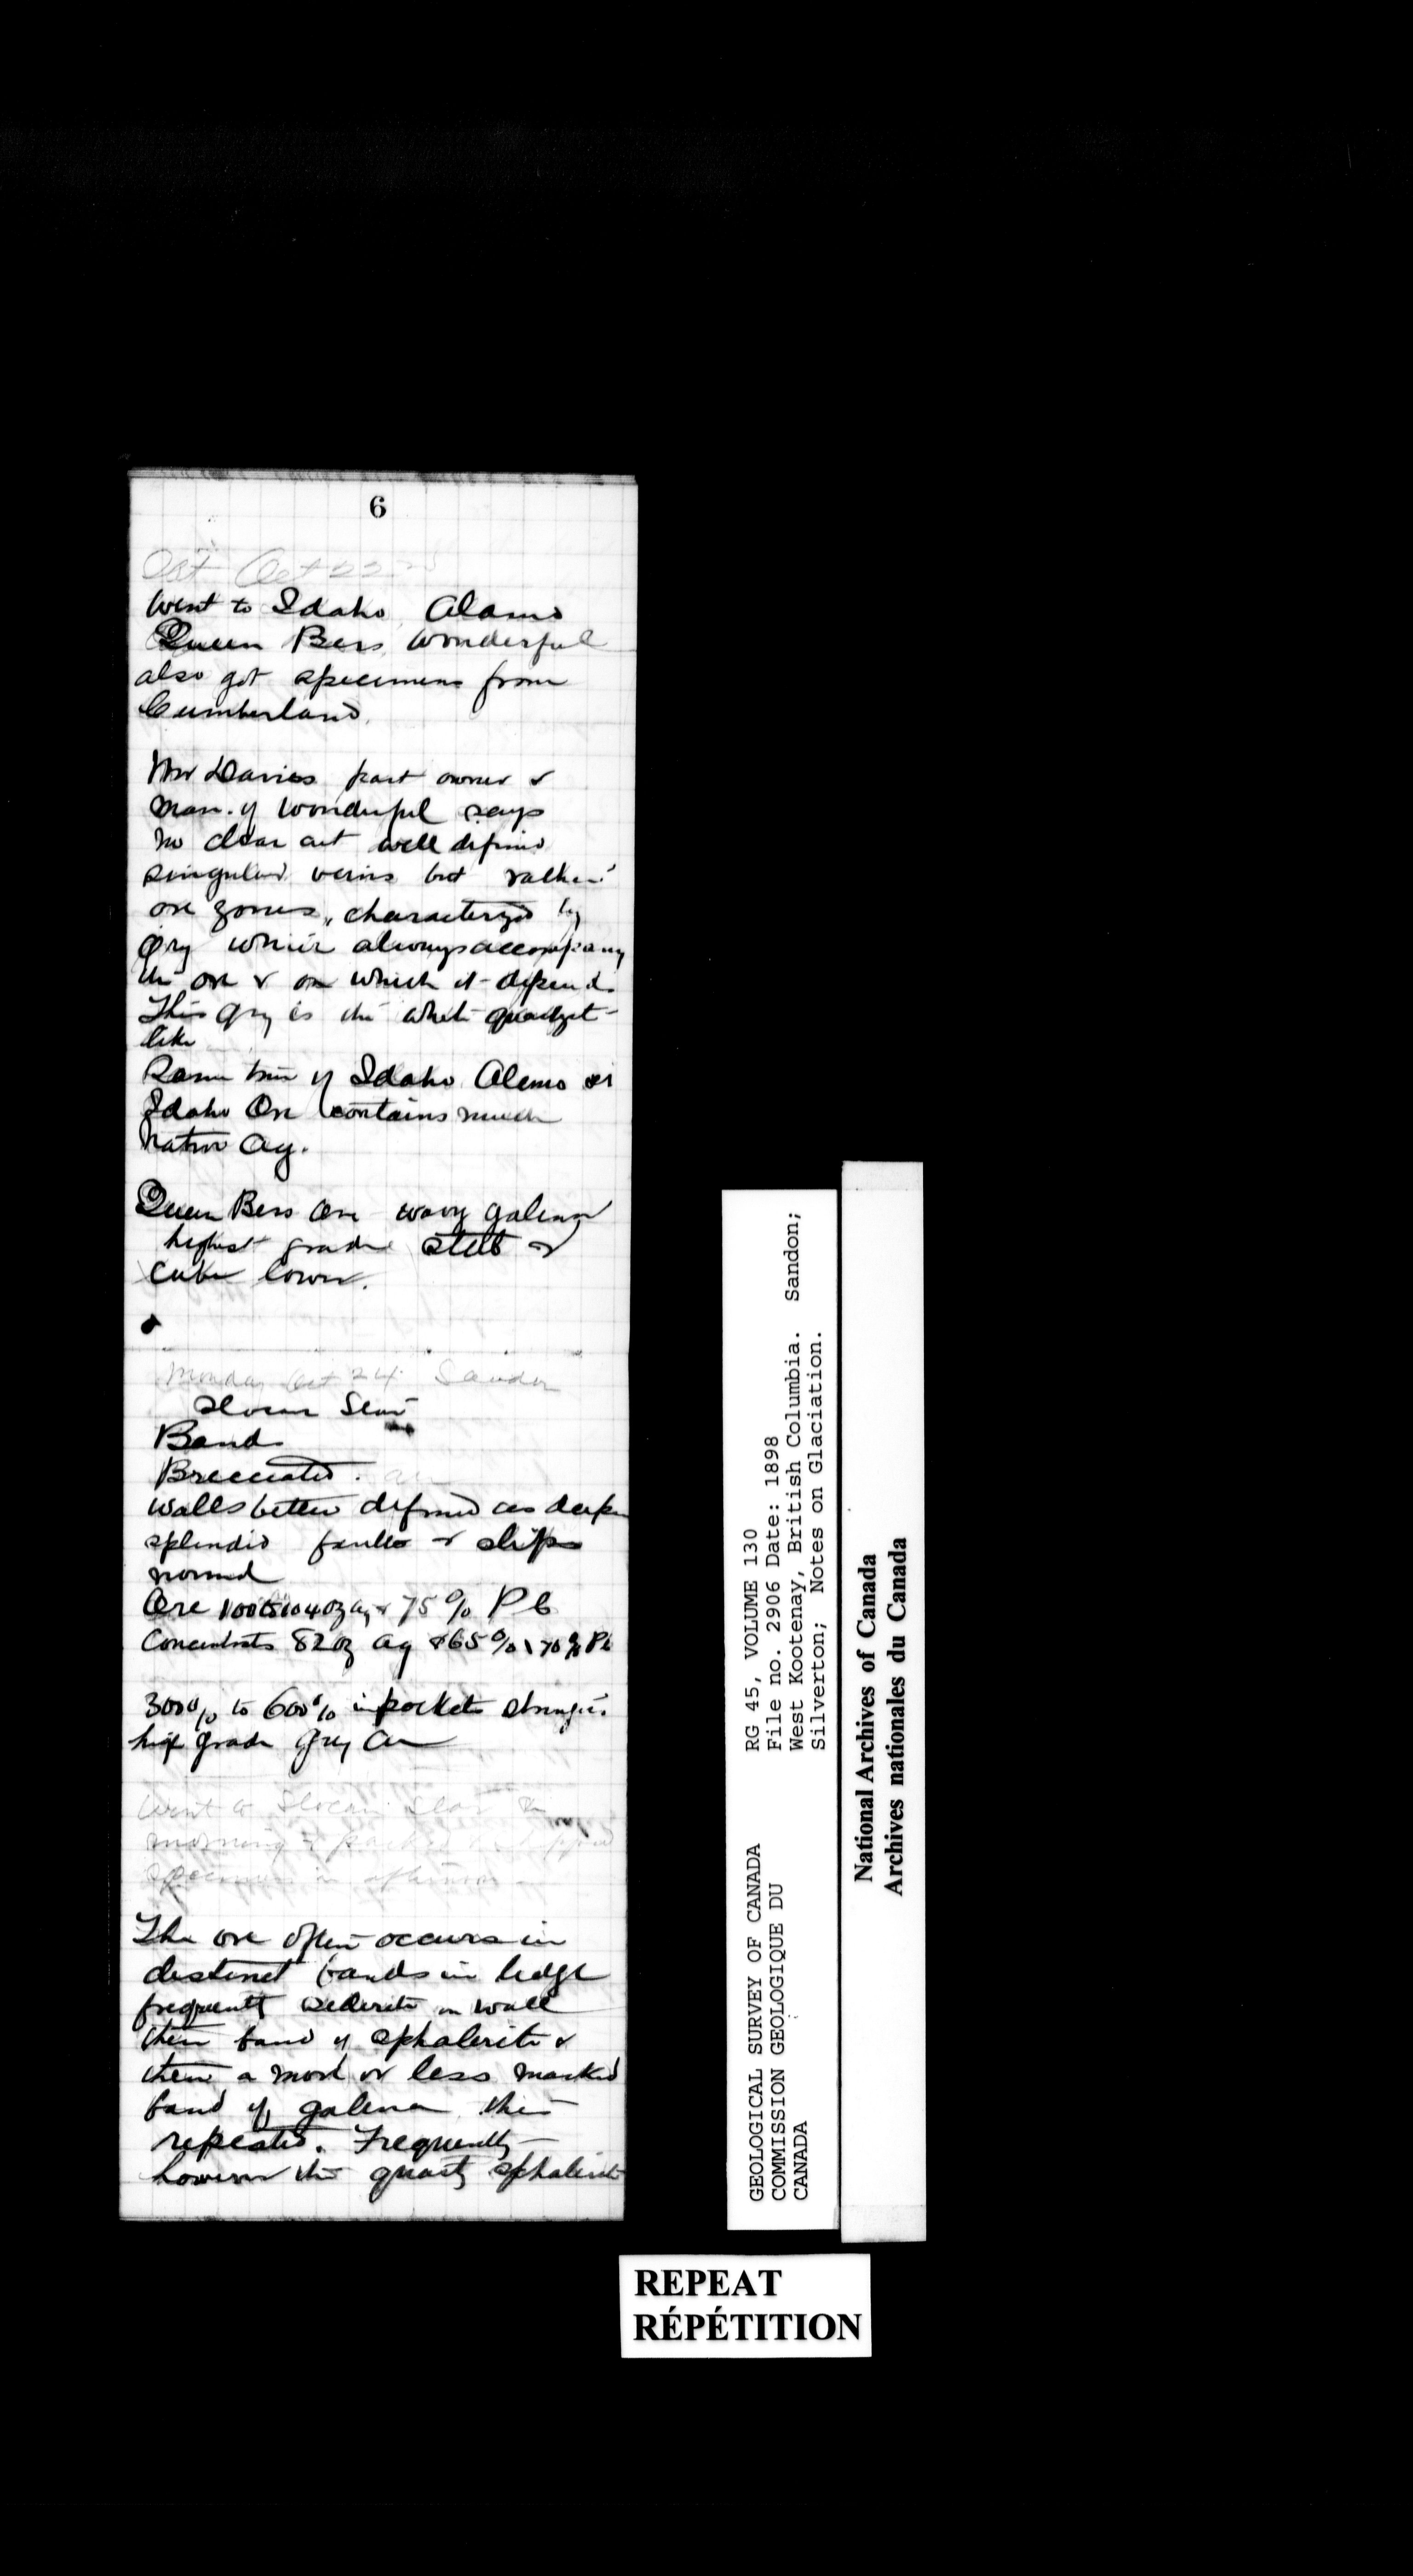 6
Oct 22nd
Went to Idaho, Alamo
Queen Bess, Wonderful
also got specimens from
Cumberland.
Mr Davies part owner &
man. of Wonderful says
no clear cut well defined
singular veins but rather
ore zones, characterized by
qry which always accompany
the ore & on which it depend
This qry is the white quartzit
like
Same true of Idaho Alamo
Idaho Ore contains much
Native Ag.
Queen Bess Ore wavy galena
highest grade steel &
cube lower.
Monday Oct 24 Sandon
Slocan Star
Bands
Brecciated.
walls better defined as deeper
splendid faults & slips
normal
Ore 100 to 104 oz ag & 75% Pb
Concentrates 82 oz ag & 65% 70% Pb
300% to 600% in pockets
high grade Grey Cu
Went to Slocan Star in
morning & packed
specimens in afternoon
The ore often occurs in
distinct bands in ledge
frequently siderite on wall
then band of sphalerite &
then a more or less marked
band of galena, this
repeated. Frequently
however the quartz sphalerite
GEOLOGICAL SURVEY OF CANADA
COMMISSION GEOLOGIQUE DU
CANADA
RG 45, VOLUME 130
File no. 2906 Date: 1898
West Kootenay, British Columbia. Sandon;
Silverton; Notes on Glaciation.
National Archives of Canada
Archives nationales du Canada
REPEAT
RÉPÉTITION